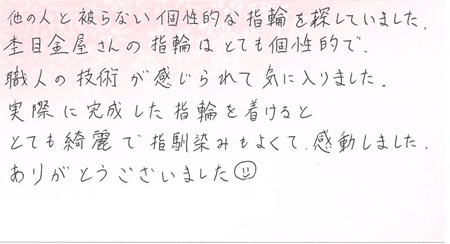 他の人と被らない個性的な指輪を探していました.
杢目金屋さんの指輪はとても個性的で.
職人の技術が感じられて気に入りました.
実際に完成した指輪を着けると
とても綺麗で指馴染みもよくて.感動しました.
ありがとうございました☺